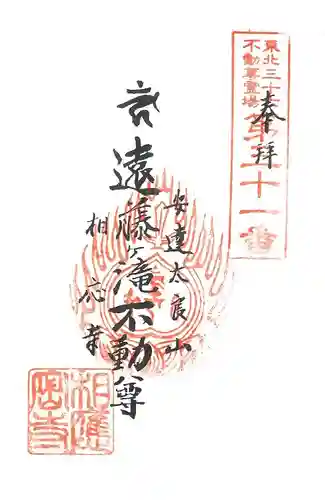 東北三十六
不動尊霊場
第二十一番
奉拝
安達太良山
遠藤ヶ滝不動尊
相応寺
相應
密寺